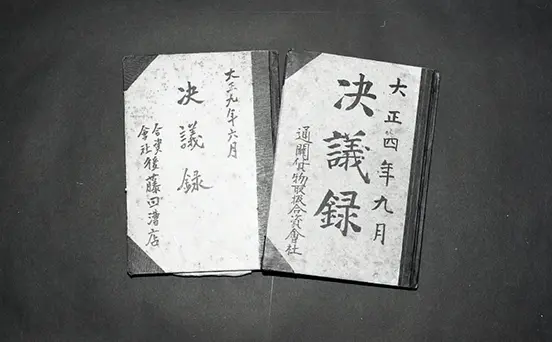 大正四年九月
决議録
通關貨物取扱合資會社
大正九年六月
决議録
合資會社後藤回漕店